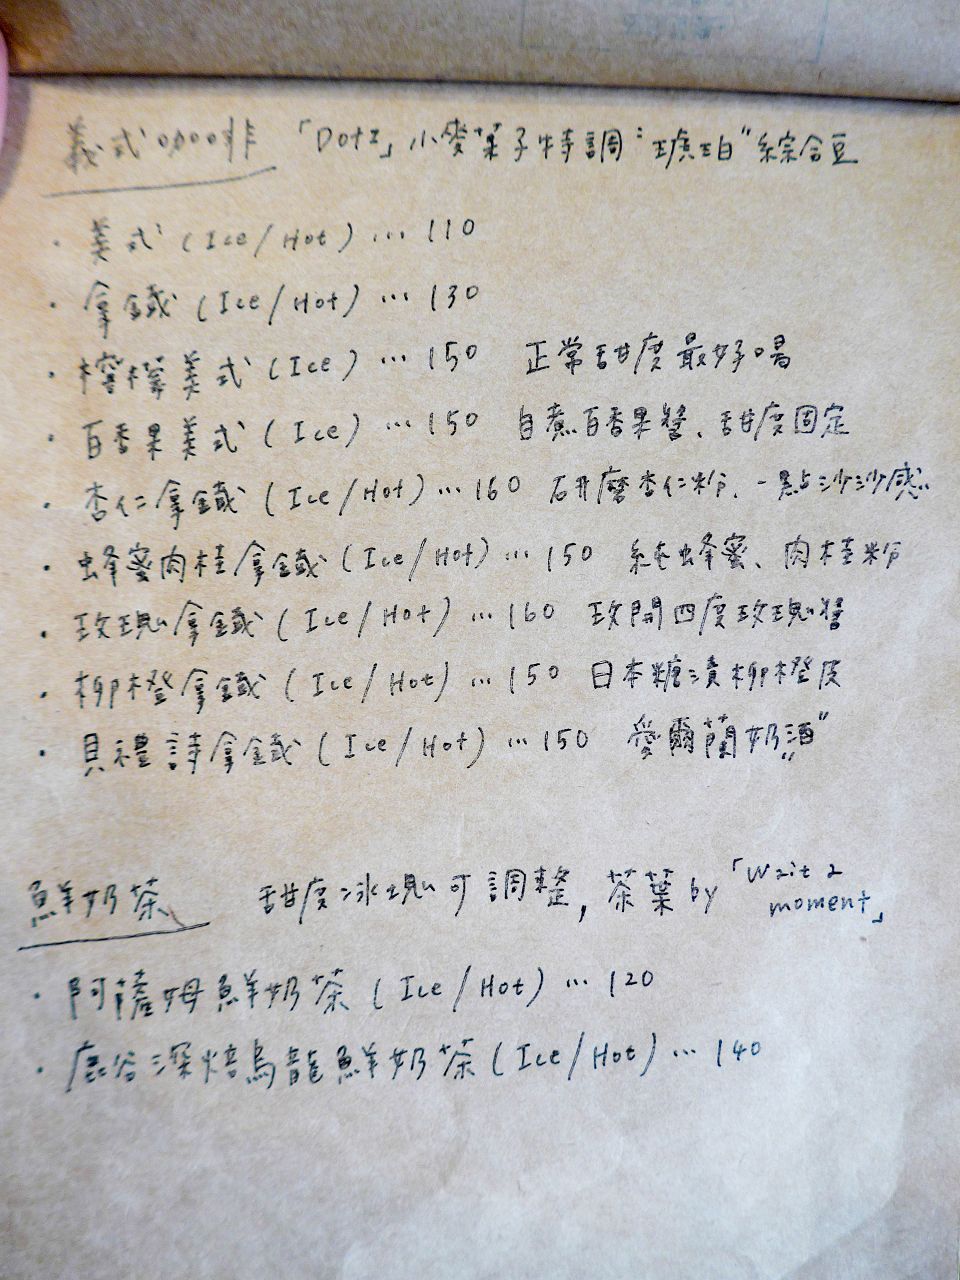 義式咖啡 「Dotz」小麥菓子特調"琥珀"綜合豆
· 美式 (Ice/Hot) ... 110
· 拿鐵 (Ice/Hot) ... 130
· 檸檬美式 (Ice) ... 150 正常甜度最好喝
· 百香果美式 (Ice) ... 150 自煮百香果醬、甜度固定
· 杏仁拿鐵 (Ice/Hot) ... 160 石井磨杏仁粉、一點沙沙感
· 蜂蜜肉桂拿鐵 (Ice/Hot) ... 150 純蜂蜜、肉桂粉
· 玫瑰拿鐵 (Ice/Hot) ... 160 玫開四度玫瑰醬
· 柳橙拿鐵 (Ice/Hot) ... 150 日本糖漬柳橙皮
· 貝禮詩拿鐵 (Ice/Hot) ... 150 愛爾蘭奶"酒"
鮮奶茶 甜度冰塊可調整, 茶葉 by 「Wait a moment」
· 阿薩姆鮮奶茶 (Ice/Hot) ... 120
· 鹿谷深焙烏龍鮮奶茶 (Ice/Hot) ... 140